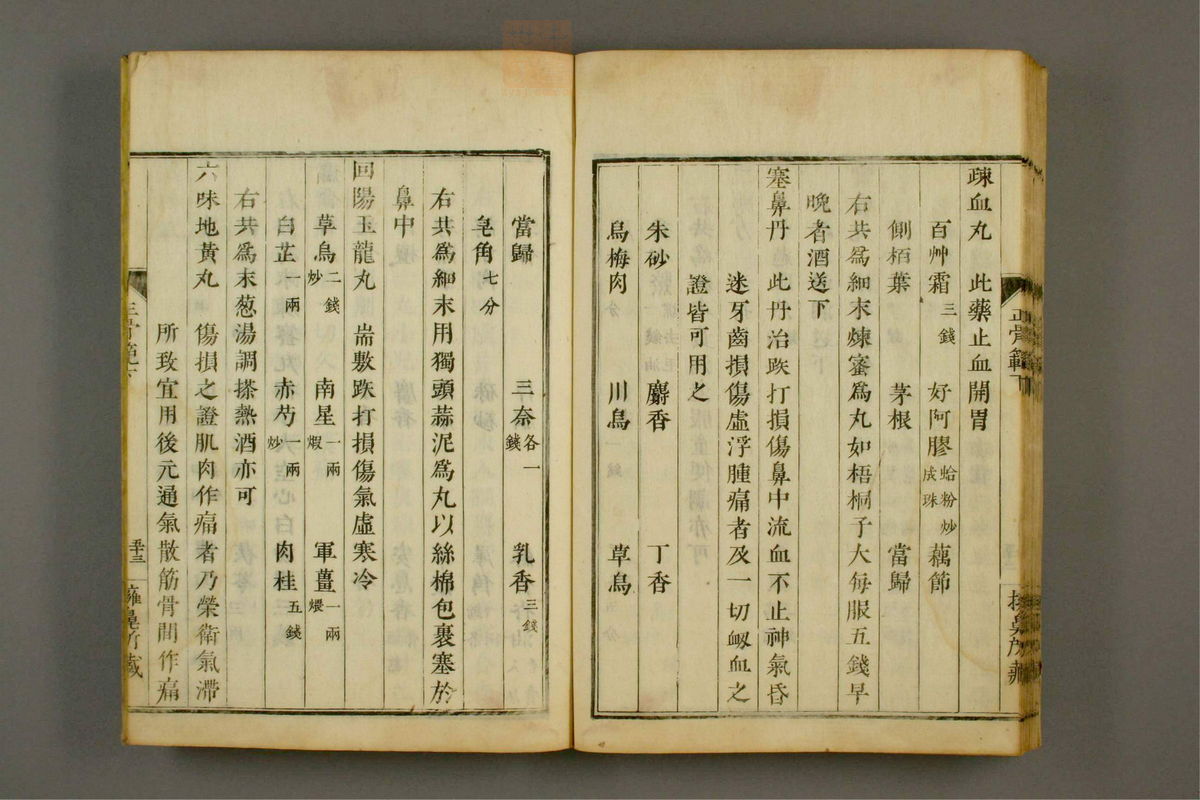 疎血丸　此藥止血開胃
百艸霜三錢　好阿膠蛤粉炒成珠　藕節
側栢葉　茅根　當歸
右共爲細末煉蜜爲丸如梧桐子大每服五錢早
晚者酒送下
塞鼻丹　此丹治跌打損傷鼻中流血不止神氣昏
迷牙齒損傷虛浮腫痛者及一切衂血之
證皆可用之
朱砂　麝香　丁香
烏梅肉　川烏　草烏
當歸　三奈各一錢　乳香三錢
皂角七分
右共爲細末用獨頭蒜泥爲丸以絲棉包裹塞於
鼻中
回陽玉龍丸　耑敷跌打損傷氣虛寒冷
草烏二錢炒　南星一兩煆　軍薑一兩煨
白芷一兩　赤芍一兩炒　肉桂五錢
右共爲末葱湯調搽熱酒亦可
六味地黃丸　傷損之證肌肉作痛者乃榮衛氣滯
所致宜用後元通氣散筋骨間作痛
正骨範下
五十三